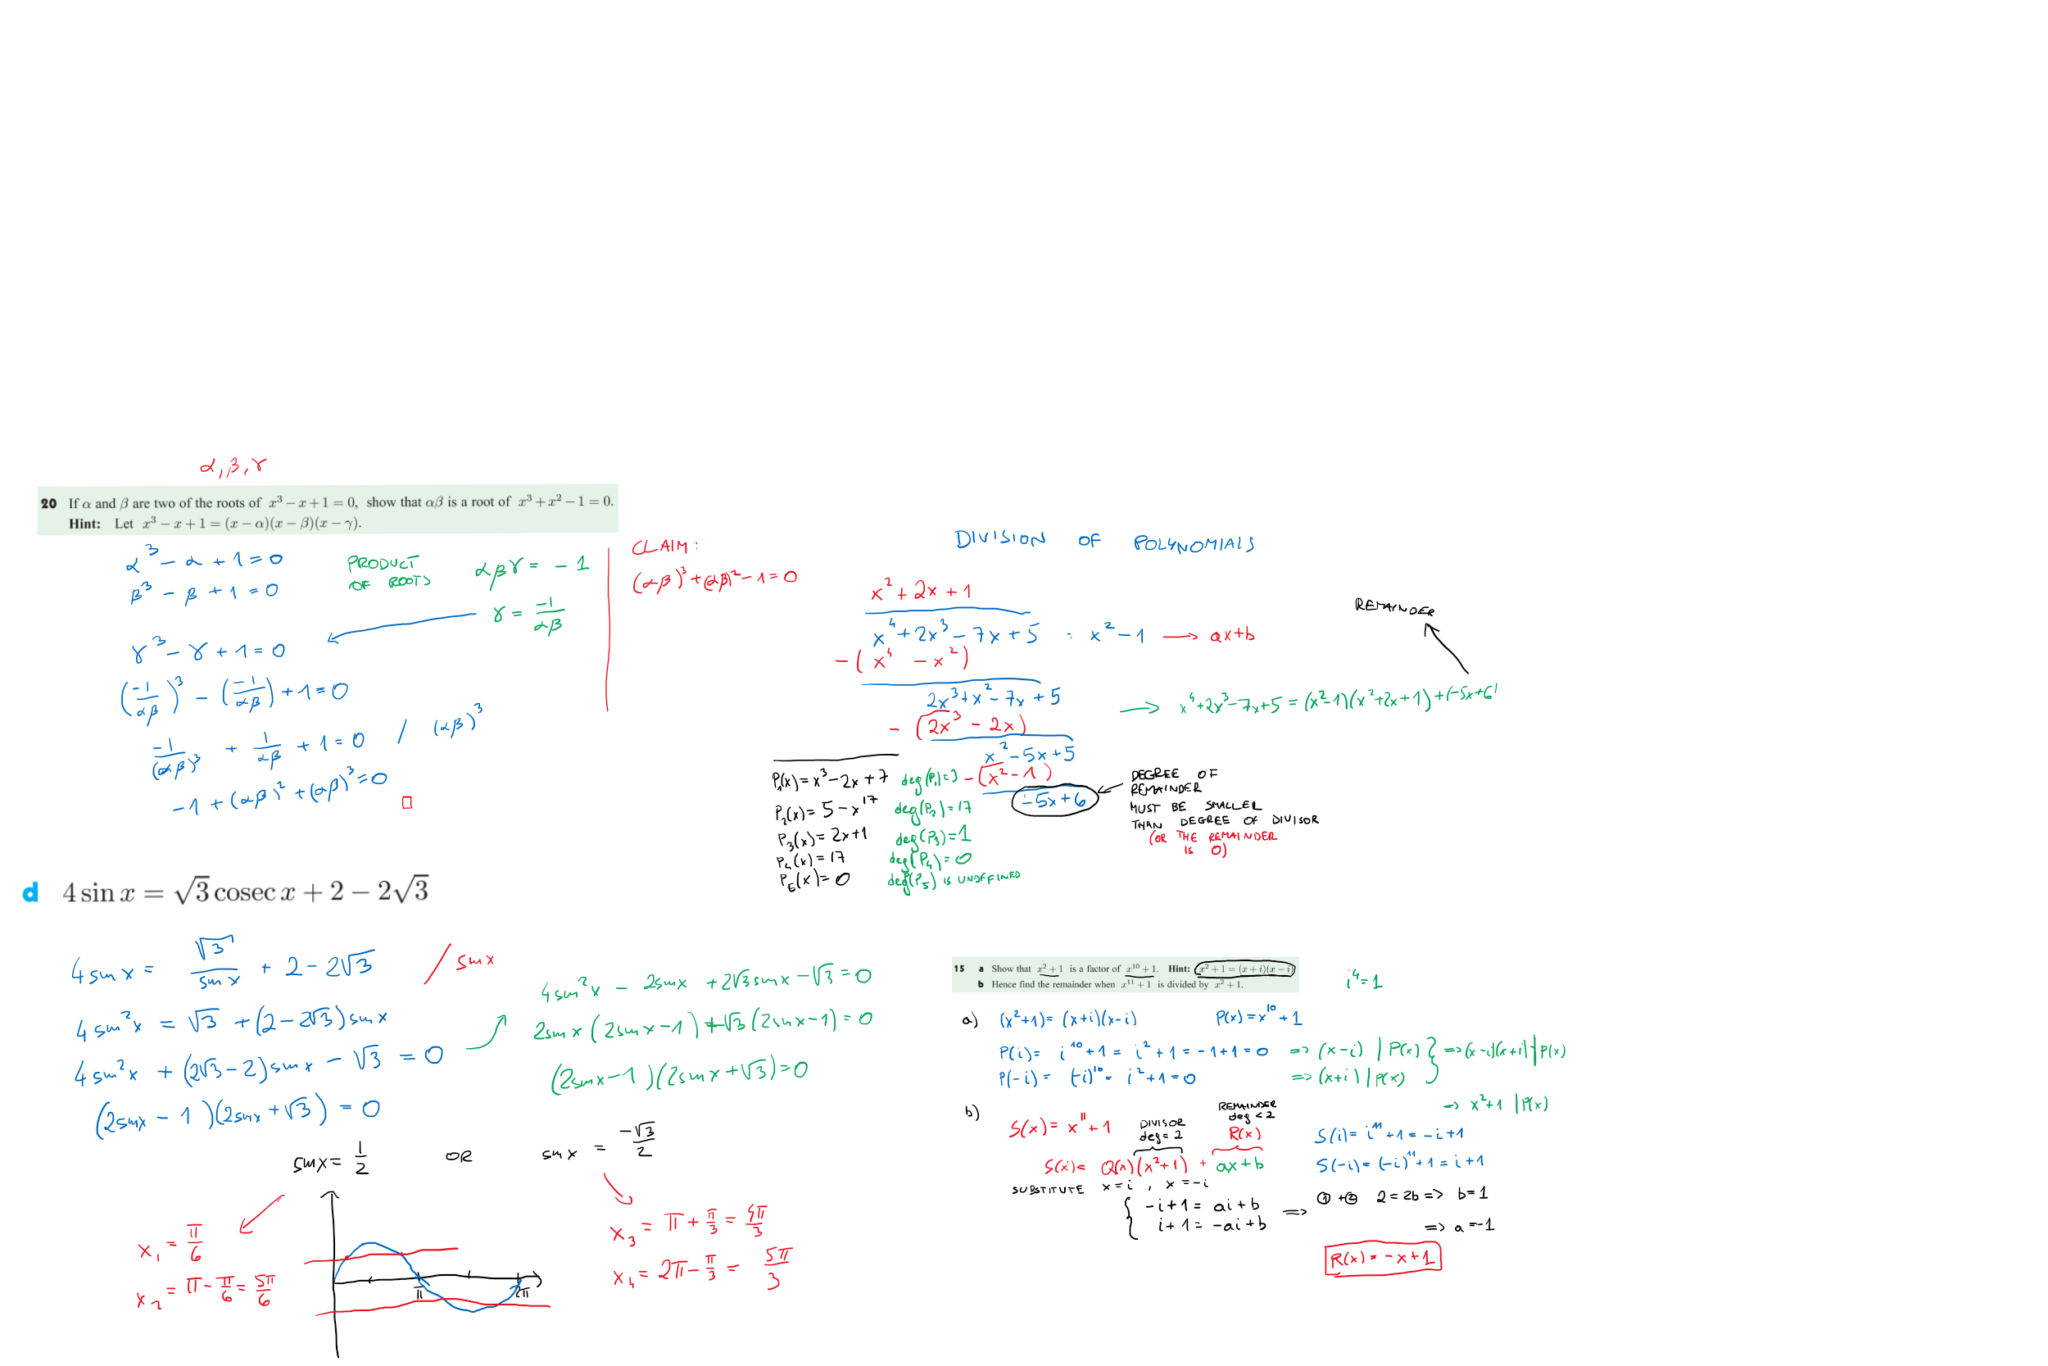 α, β, γ
20 If α and β are two of the roots of x³ − x + 1 = 0, show that αβ is a root of x³ + x² − 1 = 0.
Hint: Let x³ − x + 1 = (x − α)(x − β)(x − γ).
α³ − α + 1 = 0
β³ − β + 1 = 0
PRODUCT
OF ROOTS
αβγ = −1
γ = −1/αβ
γ³ − γ + 1 = 0
(−1/αβ)³ − (−1/αβ) + 1 = 0
−1/(αβ)³ + 1/αβ + 1 = 0 / (αβ)³
−1 + (αβ)² + (αβ)³ = 0 □
CLAIM:
(αβ)³ + (αβ)² − 1 = 0
DIVISION OF POLYNOMIALS
x² + 2x + 1
x⁴ + 2x³ − 7x + 5 : x² − 1 → ax+b
−(x⁴ − x²)
2x³ + x² − 7x + 5
−(2x³ − 2x)
x² − 5x + 5
−(x² − 1)
−5x + 6
REMAINDER
→ x⁴ + 2x³ − 7x + 5 = (x²−1)(x²+2x+1) + (−5x+6)
DEGREE OF
REMAINDER
MUST BE SMALLER
THAN DEGREE OF DIVISOR
(OR THE REMAINDER
IS 0)
P₁(x) = x³ − 2x + 7 deg(P₁) = 3
P₂(x) = 5 − x¹⁷ deg(P₂) = 17
P₃(x) = 2x + 1 deg(P₃) = 1
P₄(x) = 17 deg(P₄) = 0
P₅(x) = 0 deg(P₅) IS UNDEFINED
d 4 sin x = √3 cosec x + 2 − 2√3
4 sin x = √3/sin x + 2 − 2√3 / sin x
4 sin²x = √3 + (2 − 2√3) sin x
4 sin²x + (2√3 − 2) sin x − √3 = 0
(2 sin x − 1)(2 sin x + √3) = 0
4 sin²x − 2 sin x + 2√3 sin x − √3 = 0
2 sin x (2 sin x − 1) + √3 (2 sin x − 1) = 0
(2 sin x − 1)(2 sin x + √3) = 0
sin x = 1/2 OR sin x = −√3/2
x₁ = π/6
x₂ = π − π/6 = 5π/6
π 2π
x₃ = π + π/3 = 4π/3
x₄ = 2π − π/3 = 5π/3
15 a Show that x² + 1 is a factor of x¹⁰ + 1. Hint: x² + 1 = (x + i)(x − i)
b Hence find the remainder when x¹¹ + 1 is divided by x² + 1.
i⁴ = 1
a) (x²+1) = (x+i)(x−i) P(x) = x¹⁰ + 1
P(i) = i¹⁰ + 1 = i² + 1 = −1 + 1 = 0 => (x−i) | P(x) } => (x−i)(x+i) | P(x)
P(−i) = (−i)¹⁰ = i² + 1 = 0 => (x+i) | P(x)
=> x²+1 | P(x)
b) S(x) = x¹¹ + 1
DIVISOR
deg = 2
REMAINDER
deg < 2
R(x)
S(x) = Q(x)(x²+1) + ax+b
SUBSTITUTE x = i , x = −i
S(i) = i¹¹ + 1 = −i + 1
S(−i) = (−i)¹¹ + 1 = i + 1
−i + 1 = ai + b
i + 1 = −ai + b
=> ① + ② 2 = 2b => b = 1
=> a = −1
R(x) = −x + 1